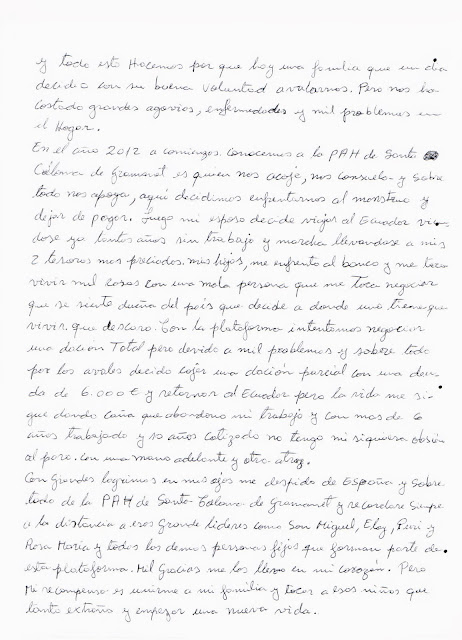 y todo esto Hacemos por que hay una familia que un dia
decidio con su buena voluntad avalarnos. Pero nos ha
costado grandes agovios, enfermedades y mil problemas en
el Hogar.
En el año 2012 a comienzos conocemos a la PAH de Santa
Coloma de Gramanet es quien nos acoje, nos consuela y sobre
todo nos apoya, aqui decidimos enfrentarnos al monstruo y
dejar de pagar. Luego mi esposo decide viajar al Ecuador vien-
dose ya tantos años sin trabajo y marcha llevandose a mis
2 tesoros mas preciados. mis hijos, me enfrento al banco y me toca
vivir mil cosas con una mala persona que me toca negociar
que se siente dueña del pais que decide a donde uno tiene que
vivir. que descaro. Con la plataforma intentamos negociar
una dación Total pero devido a mil problemas y sobre todo
por los avales decido cojer una dación parcial con una deu-
da de 6.000€ y retornar al Ecuador pero la vida me si-
gue dando caña que abandono mi trabajo y con mas de 6
años trabajado y 10 años cotizado no tengo ni siquiera obsión
al paro. con una mano adelante y otra atraz.
Con Grandes lagrimas en mis ojos me despido de España y sobre
todo de la PAH de Santa Coloma de Gramanet y recordare siempre
a la distancia a esos Grande lideres como San Miguel, Eloy, Puri y
Rosa Maria y todos los demas personas fijos que forman parte de
esta plataforma. Mil Gracias me los llevo en mi corazón. Pero
Mi recompensa es unirme a mi familia y tocar a esos niños que
tanto extraño y empezar una nueva vida.